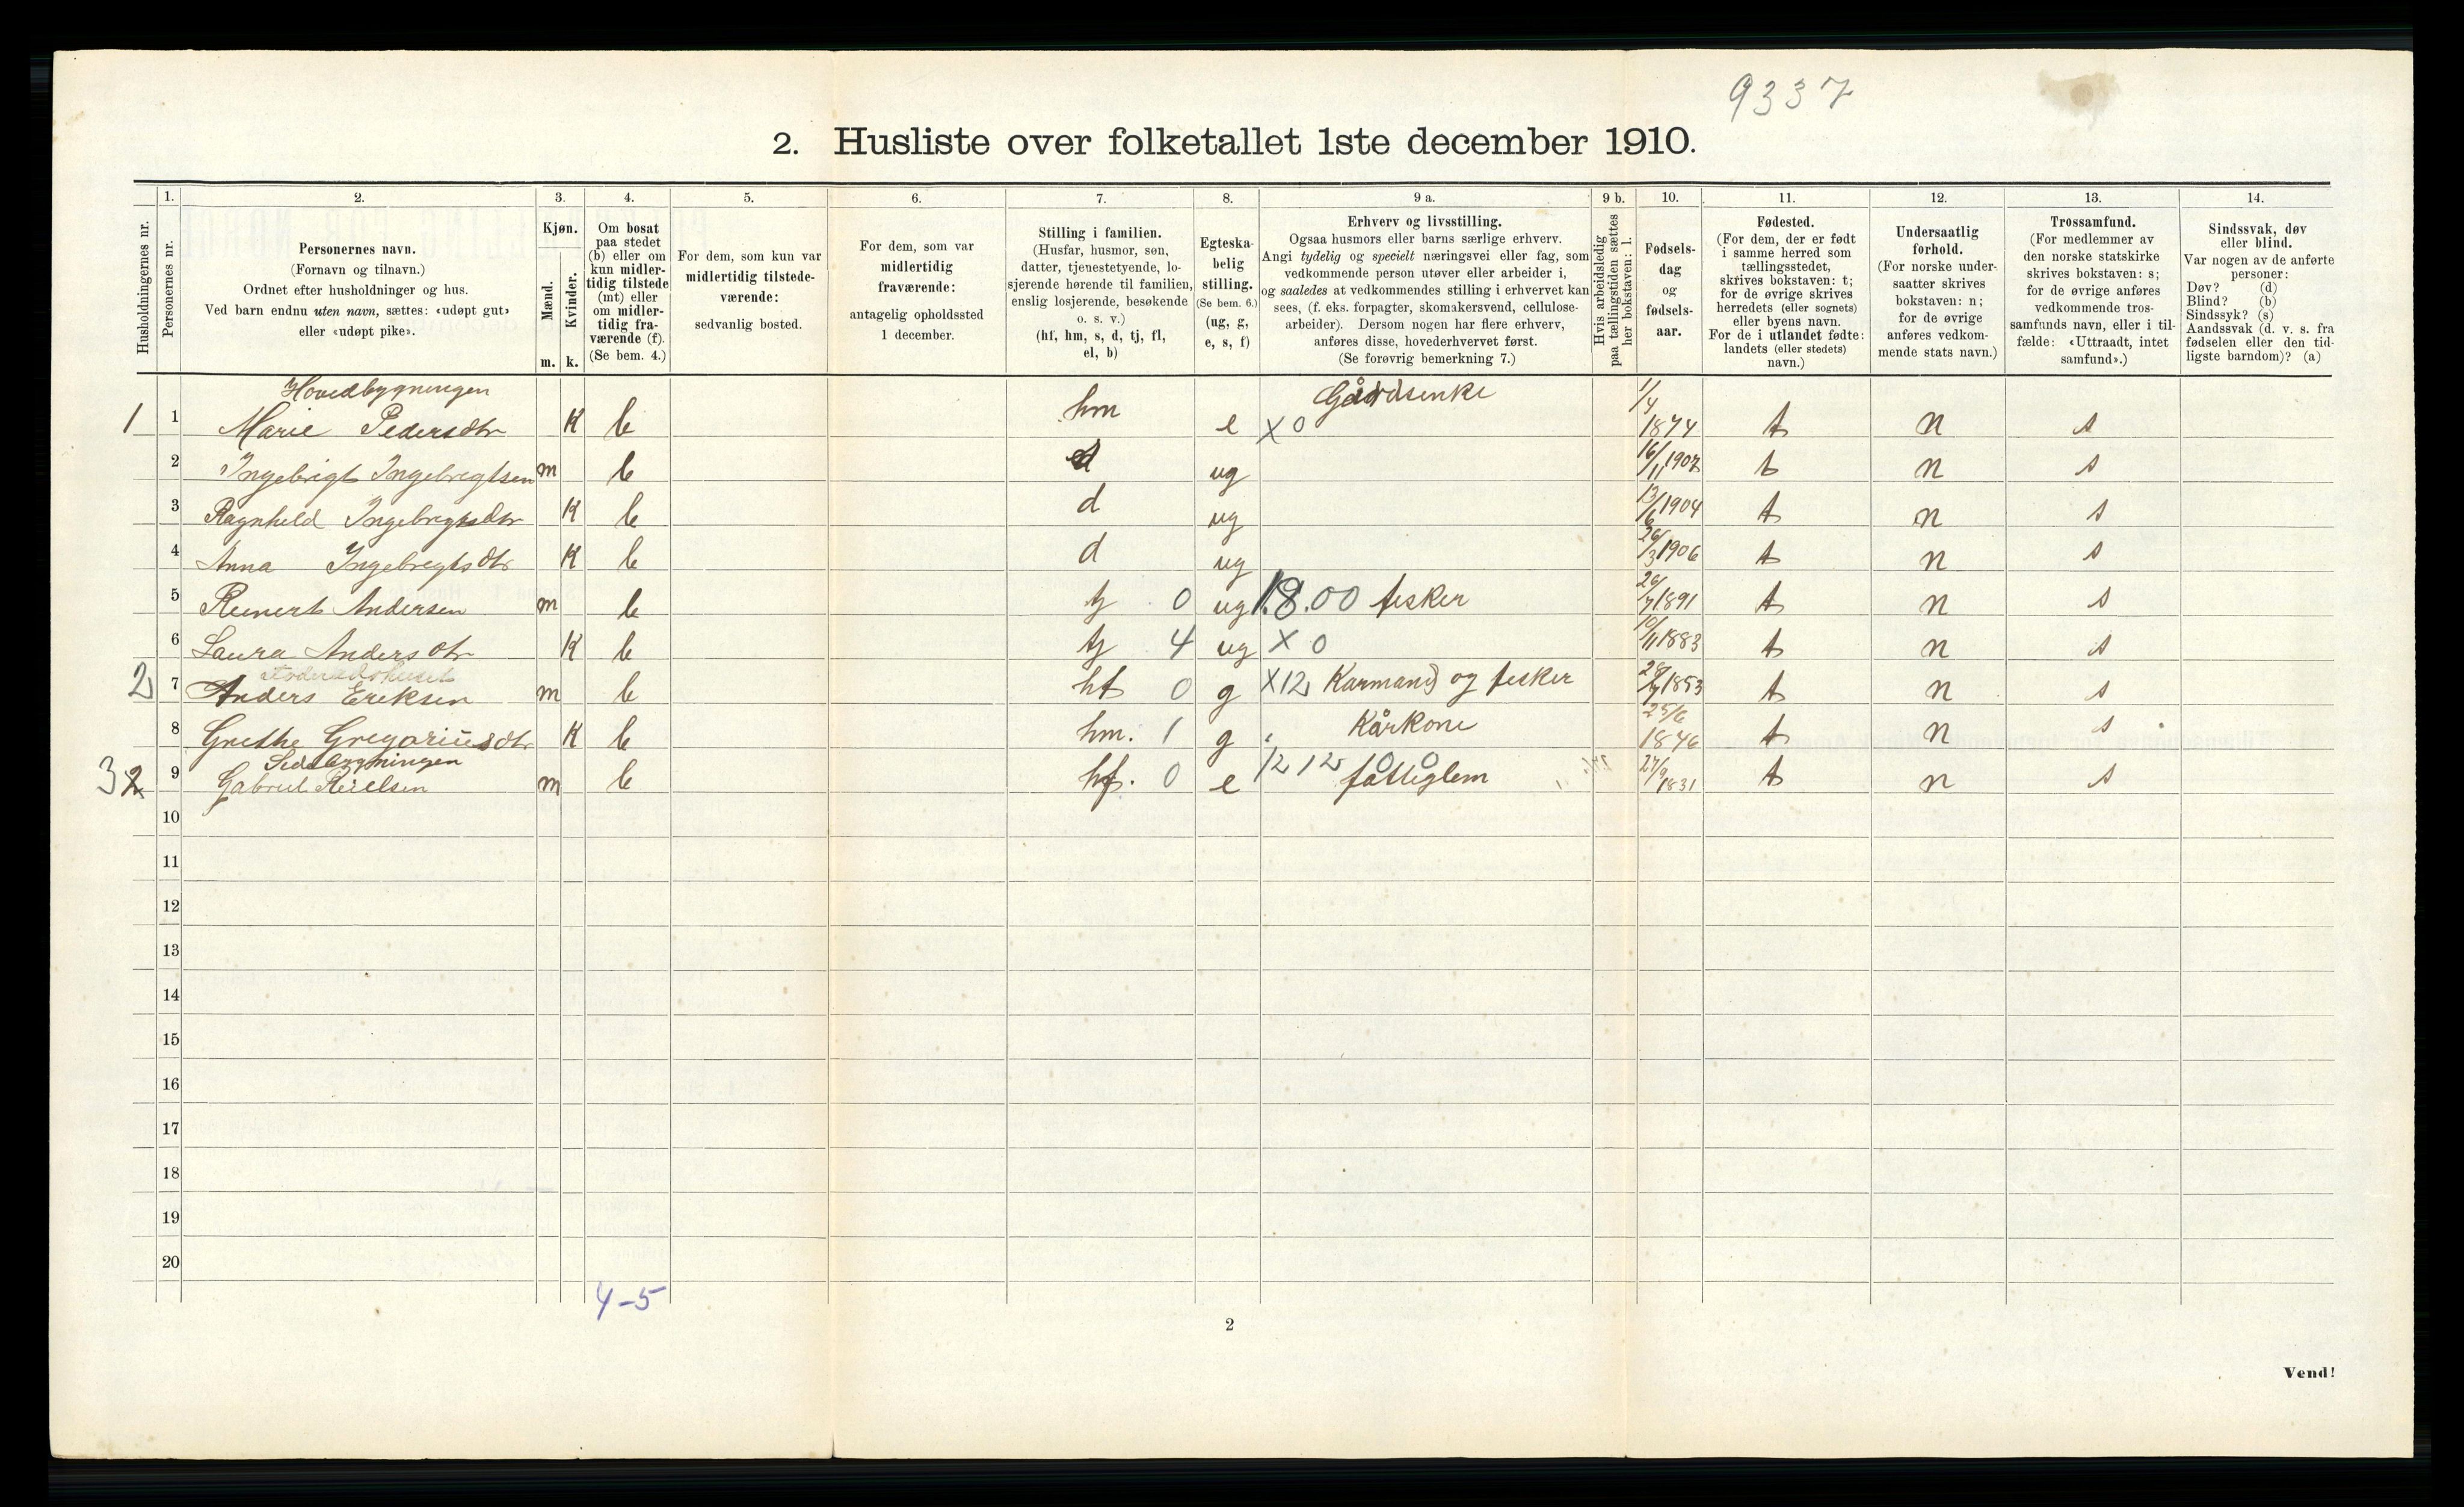 9337
2. Husliste over folketallet 1ste december 1910.
Husholdningernes nr.
1.
Personernes nr.
2.
Personernes navn.
(Fornavn og tilnavn.)
Ordnet efter husholdninger og hus.
Ved barn endnu uten navn, sættes: «udøpt gut»
eller «udøpt pike».
3.
Kjøn.
Mænd.
Kvinder.
m. k.
4.
Om bosat
paa stedet
(b) eller om
kun midler-
tidig tilstede
(mt) eller
om midler-
tidig fra-
værende (f).
(Se bem. 4.)
5.
For dem, som kun var
midlertidig tilstede-
værende:
sedvanlig bosted.
6.
For dem, som var
midlertidig
fraværende:
antagelig opholdssted
1 december.
7.
Stilling i familien.
(Husfar, husmor, søn,
datter, tjenestetyende, lo-
sjerende hørende til familien,
enslig losjerende, besøkende
o. s. v.)
(hf, hm, s, d, tj, fl,
el, b)
8.
Egteska-
belig
stilling.
(Se bem. 6.)
(ug, g,
e, s, f)
9 a.
Erhverv og livsstilling.
Ogsaa husmors eller barns særlige erhverv.
Angi tydelig og specielt næringsvei eller fag, som
vedkommende person utøver eller arbeider i,
og saaledes at vedkommendes stilling i erhvervet kan
sees, (f. eks. forpagter, skomakersvend, cellulose-
arbeider). Dersom nogen har flere erhverv,
anføres disse, hovederhvervet først.
(Se forøvrig bemerkning 7.)
9 b.
Hvis arbeidsledig
paa tællingstiden sættes
her bokstaven: l.
10.
Fødsels-
dag
og
fødsels-
aar.
11.
Fødested.
(For dem, der er født
i samme herred som
tællingsstedet,
skrives bokstaven: t;
for de øvrige skrives
herredets (eller sognets)
eller byens navn.
For de i utlandet fødte:
landets (eller stedets)
navn.)
12.
Undersaatlig
forhold.
(For norske under-
saatter skrives
bokstaven: n;
for de øvrige
anføres vedkom-
mende stats navn.)
13.
Trossamfund.
(For medlemmer av
den norske statskirke
skrives bokstaven: s;
for de øvrige anføres
vedkommende tros-
samfunds navn, eller i til-
fælde: «Uttraadt, intet
samfund».)
14.
Sindssvak, døv
eller blind.
Var nogen av de anførte
personer:
Døv? (d)
Blind? (b)
Sindssyk? (s)
Aandssvak (d. v. s. fra
fødselen eller den tid-
ligste barndom)? (a)
Hovedbygningen
1 1 Marie Pedersdtr K b hm e X 0 Gårdsenke 1/4 1874 t n s
2 Ingebrigt Ingebregtsen m b ug 16/11 1907 t n s
3 Ragnhild Ingebregtsdtr K b d ug 13/6 1904 t n s
4 Anna Ingebregtsdtr K b d ug 26/3 1906 t n s
5 Reinert Andersen m b tj 0 ug 18.00 fisker 26/7 1891 t n s
6 Laura Andersdtr K b tj 4 ug X 0 10/11 1883 t n s
2 7 Anders Eriksen m b hf 0 g X12 Kårmand og fisker 28/7 1853 t n s
8 Grethe Gregoriusdtr K b hm. 1 g Kårkone 25/6 1846 t n s
Sidebygningen
3 2 9 Gabriel m b hf. 0 e 12 12 0 0 fåttiglem 27/9 1831 t n s
10
11
12
13
14
15
16
17
18
19
20
4-5
2
Vend!